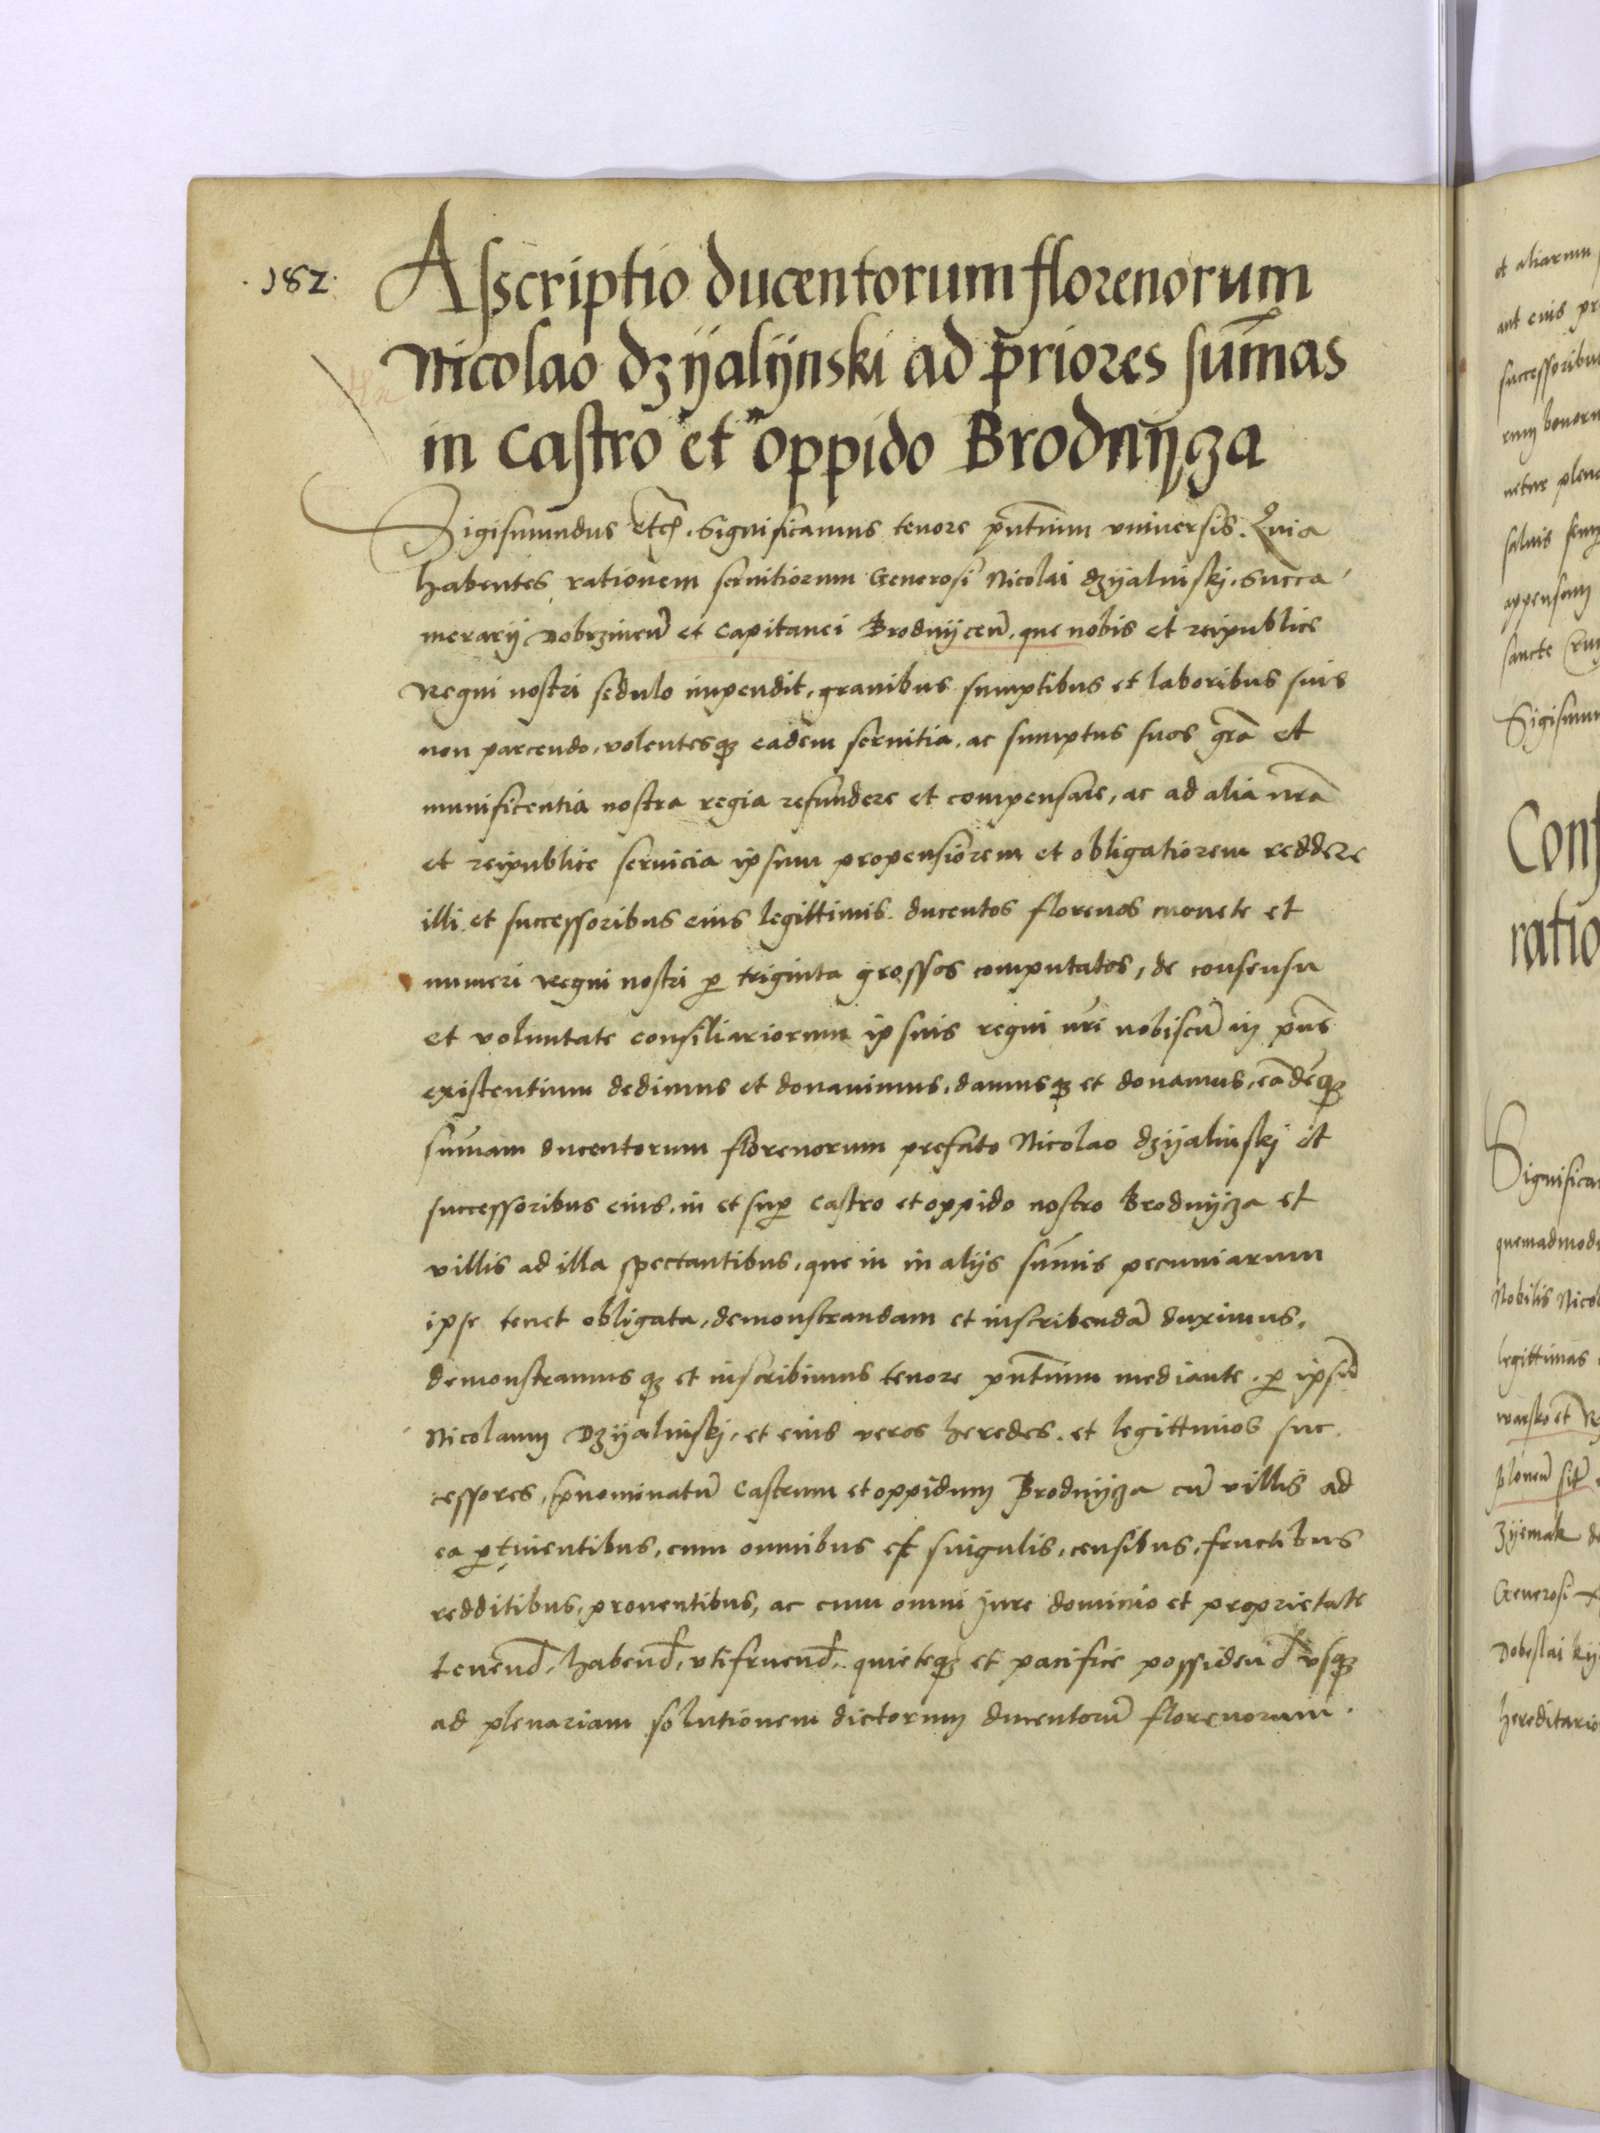 .182.
Asscriptio ducentorum florenorum
Nicolao dzyalynski ad priores sum̄as
in castro et oppido Brodnycza
Sigismundus etc̄. Significamus tenore pn̄tium vniversis. Quia
habentes rationem seruitiorum Generosi Nicolai dzyalinskj. Succa
merarij Dobrzinen̄ et Capitanei Brodnycen̄. que nobis et reipublice
Regni nostri sedulo impendit, grauibus sumptibus et laboribus suis
non parcendo, volentesqȝ eadem seruitia, ac sumptus suos gr̄a et
munificentia nostra regia refundere et compensare, ac ad alia nr̄a
et reipublice seruicia ipsum propensiorem et obligatiorem reddere
illi et successoribus eius legittimis. ducentos florenos monete et
numeri Regni nostri ꝑ triginta grossos computatos, de consensu
et voluntate consiliariorum ipsius regni nr̄i nobiscū in pn̄s
existentium dedimus et donauimus, damusqȝ et donamus, eādēqȝ
sum̄am ducentorum florenorum prefato Nicolao dzyalinskj et
successoribus eius, in et suꝑ Castro et oppido nostro Brodnycza et
villis ad illa spectantibus, que in in alijs sum̄is pecuniarum
ipse tenet obligata, demonstrandam et inscribendā duximus,
demonstramusqȝ et inscribimus tenore pn̄tium mediante. ꝑ ipsū
Nicolaum Dzyalinskj, et eius veros heredes. et legittimos suc
cessores, p̄nominatū Castrum et oppidum Brodnycza cū villis ad
ea ꝑtinentibus, cum omnibus et singulis, censibus, fructibus
redditibus, prouentibus, ac cum omni jure dominio et proprietate
tenend̄, habend̄, vtifruend̄, quieteqȝ et pacifice possidend̄ vsqȝ
ad plenariam solutionem dictorum ducentorū florenorum.
et aliarum
aut eius
successoribus
salvis
appensum
sancte
Sigismun
Conf
ratio
Significa
quemadmodu
Nobilis Nicol
legittimas
Generosi
Dobeslai
hereditario